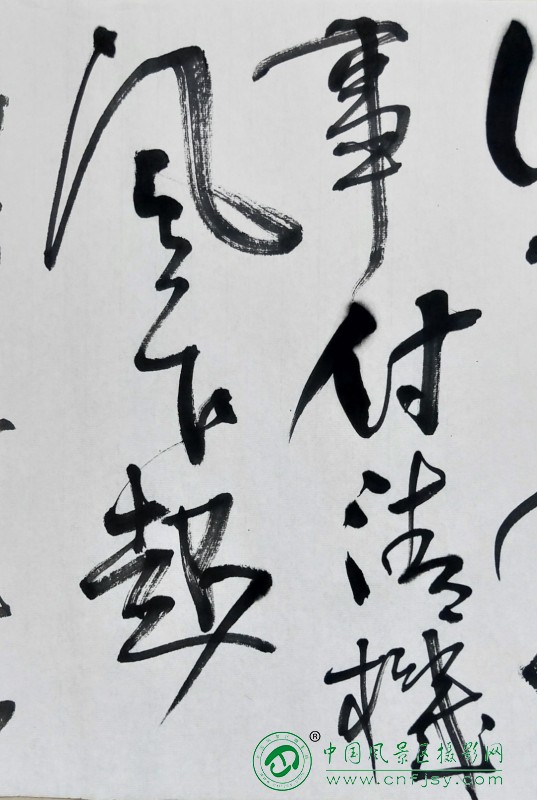 事付清機
風乍起
®
中国風景区摄影网
www.cnfjsy.com